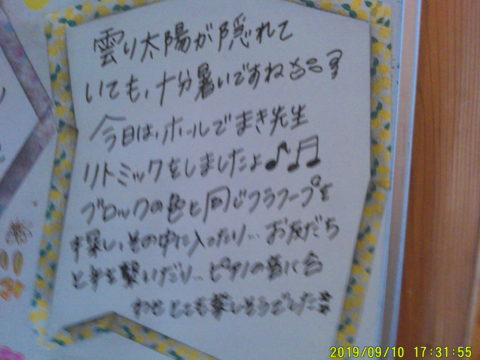 雲り太陽が隠れて
いても、十分暑いですね
今日は、ホールでまき先生
リトミックをしましたよ♪♬
ブロックの色と同じフラフープを
探し、その中に入ったり… お友だち
と手を繋いだり… ピアノの音に合
わせとても楽しそうでした
2019/09/10 17:31:55